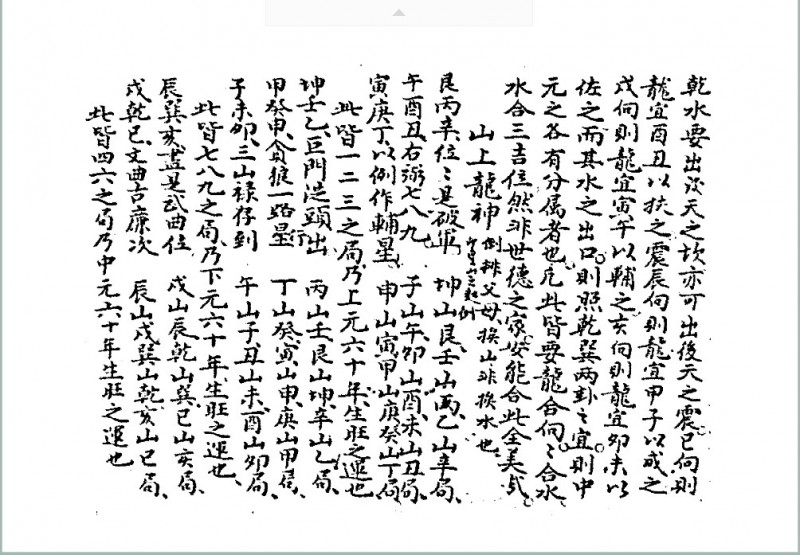 乾水要出後天之坎亦可出後天之震巳向則
龍宜酉丑以扶之震辰向則龍宜甲子以成之
戌向則龍宜寅午以輔之亥向則龍宜卯未以
佐之而其水之出口則照乾巽兩卦之宜則中
元之各有分属者也凢此皆要龍合向〻合水
水合三吉位然非世德之家安能合此全美哉
山上龍神 倒排父母換山非換水也
艮丙辛位〻是破軍 坤山艮壬山丙乙山辛局
午酉丑右弼七八九 子山午卯山酉未山丑局
寅庚丁以例作輔星 申山寅甲山庚癸山丁局
此皆一二三之局乃上元六十年生旺之運也
坤壬乙巨門從頭出 丙山壬艮山坤辛山乙局
甲癸申貪狼一路行 丁山癸寅山申庚山甲局
子未卯三山禄存到 午山子丑山未酉山卯局
此皆七八九之局乃下元六十年生旺之運也
辰巽亥盡是武曲位 戌山辰乾山巽巳山亥局
戌乾巳文曲古廉次 辰山戌巽山乾亥山巳局
此皆四六之局乃中元六十年生旺之運也